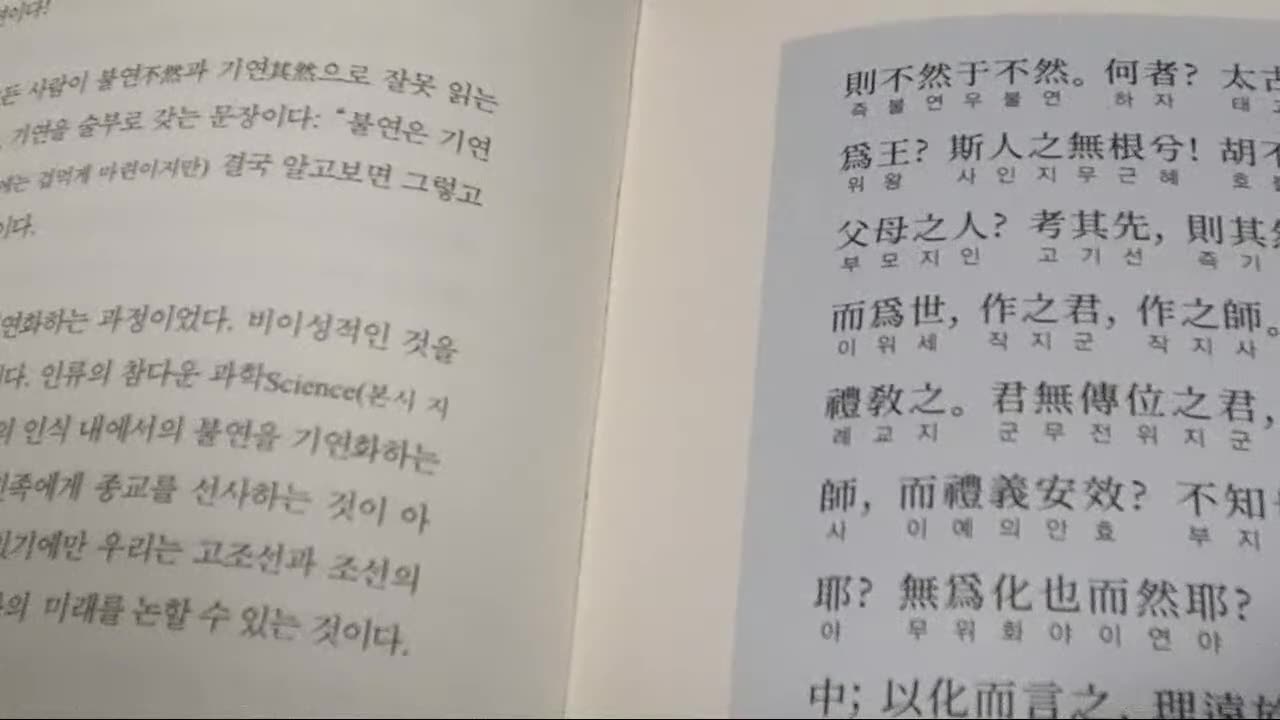 사람이 불연不然과 기연其然으로 잘못 읽는
기연을 술부로 갖는 문장이다: "불연은 기연
겁먹게 마련이지만) 결국 알고보면 그렇고
이다.
연화하는 과정이었다. 비이성적인 것을
다. 인류의 참다운 과학Science(본시 지
인식 내에서의 불연을 기연화하는
민족에게 종교를 선사하는 것이 아
있기에만 우리는 고조선과 조선의
미래를 논할 수 있는 것이다.
則不然于不然。何者? 太古
즉불연우불연 하자 태고
爲王? 斯人之無根兮! 胡不
위왕 사인지무근혜 호불
父母之人? 考其先, 則其然
부모지인 고기선 즉기
而爲世, 作之君, 作之師。
이위세 작지군 작지사
禮敎之。君無傳位之君,
례교지 군무전위지군
師, 而禮義安效? 不知
사 이예의안효 부지
耶? 無爲化也而然耶?
야 무위화야이연야
中; 以化而言之, 理遠於